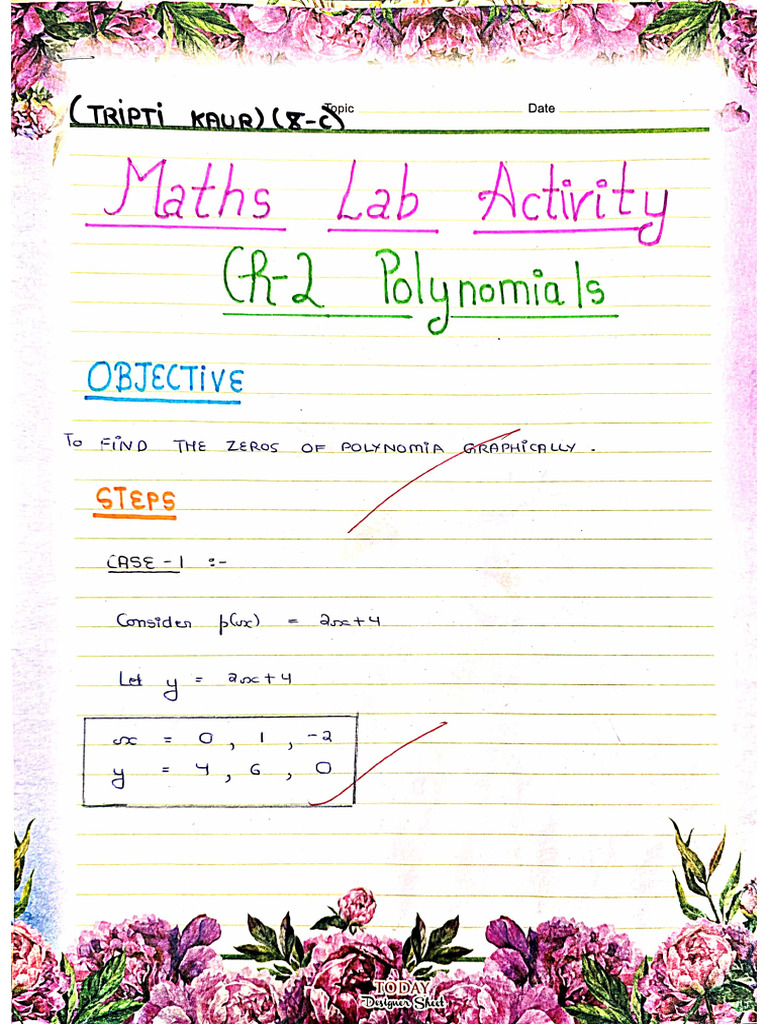 (TRIPTI KAUR) (8-C) Topic Date
Maths Lab Activity
Ch-2 Polynomials
OBJECTIVE
To FIND THE ZEROS OF POLYNOMIA GRAPHICALLY.
STEPS
CASE-1 :-
Consider p(x) = 2x+4
Let y = 2x+4
x = 0, 1, -2
y = 4, 6, 0
TODAY
Designer Sheet